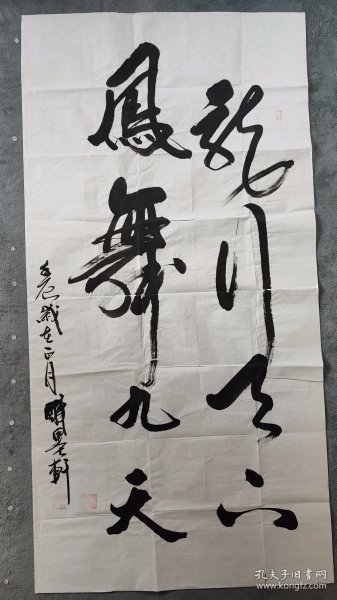 龍行天下
鳳舞九天
壬辰歲在正月 墨軒
孔夫子旧书网